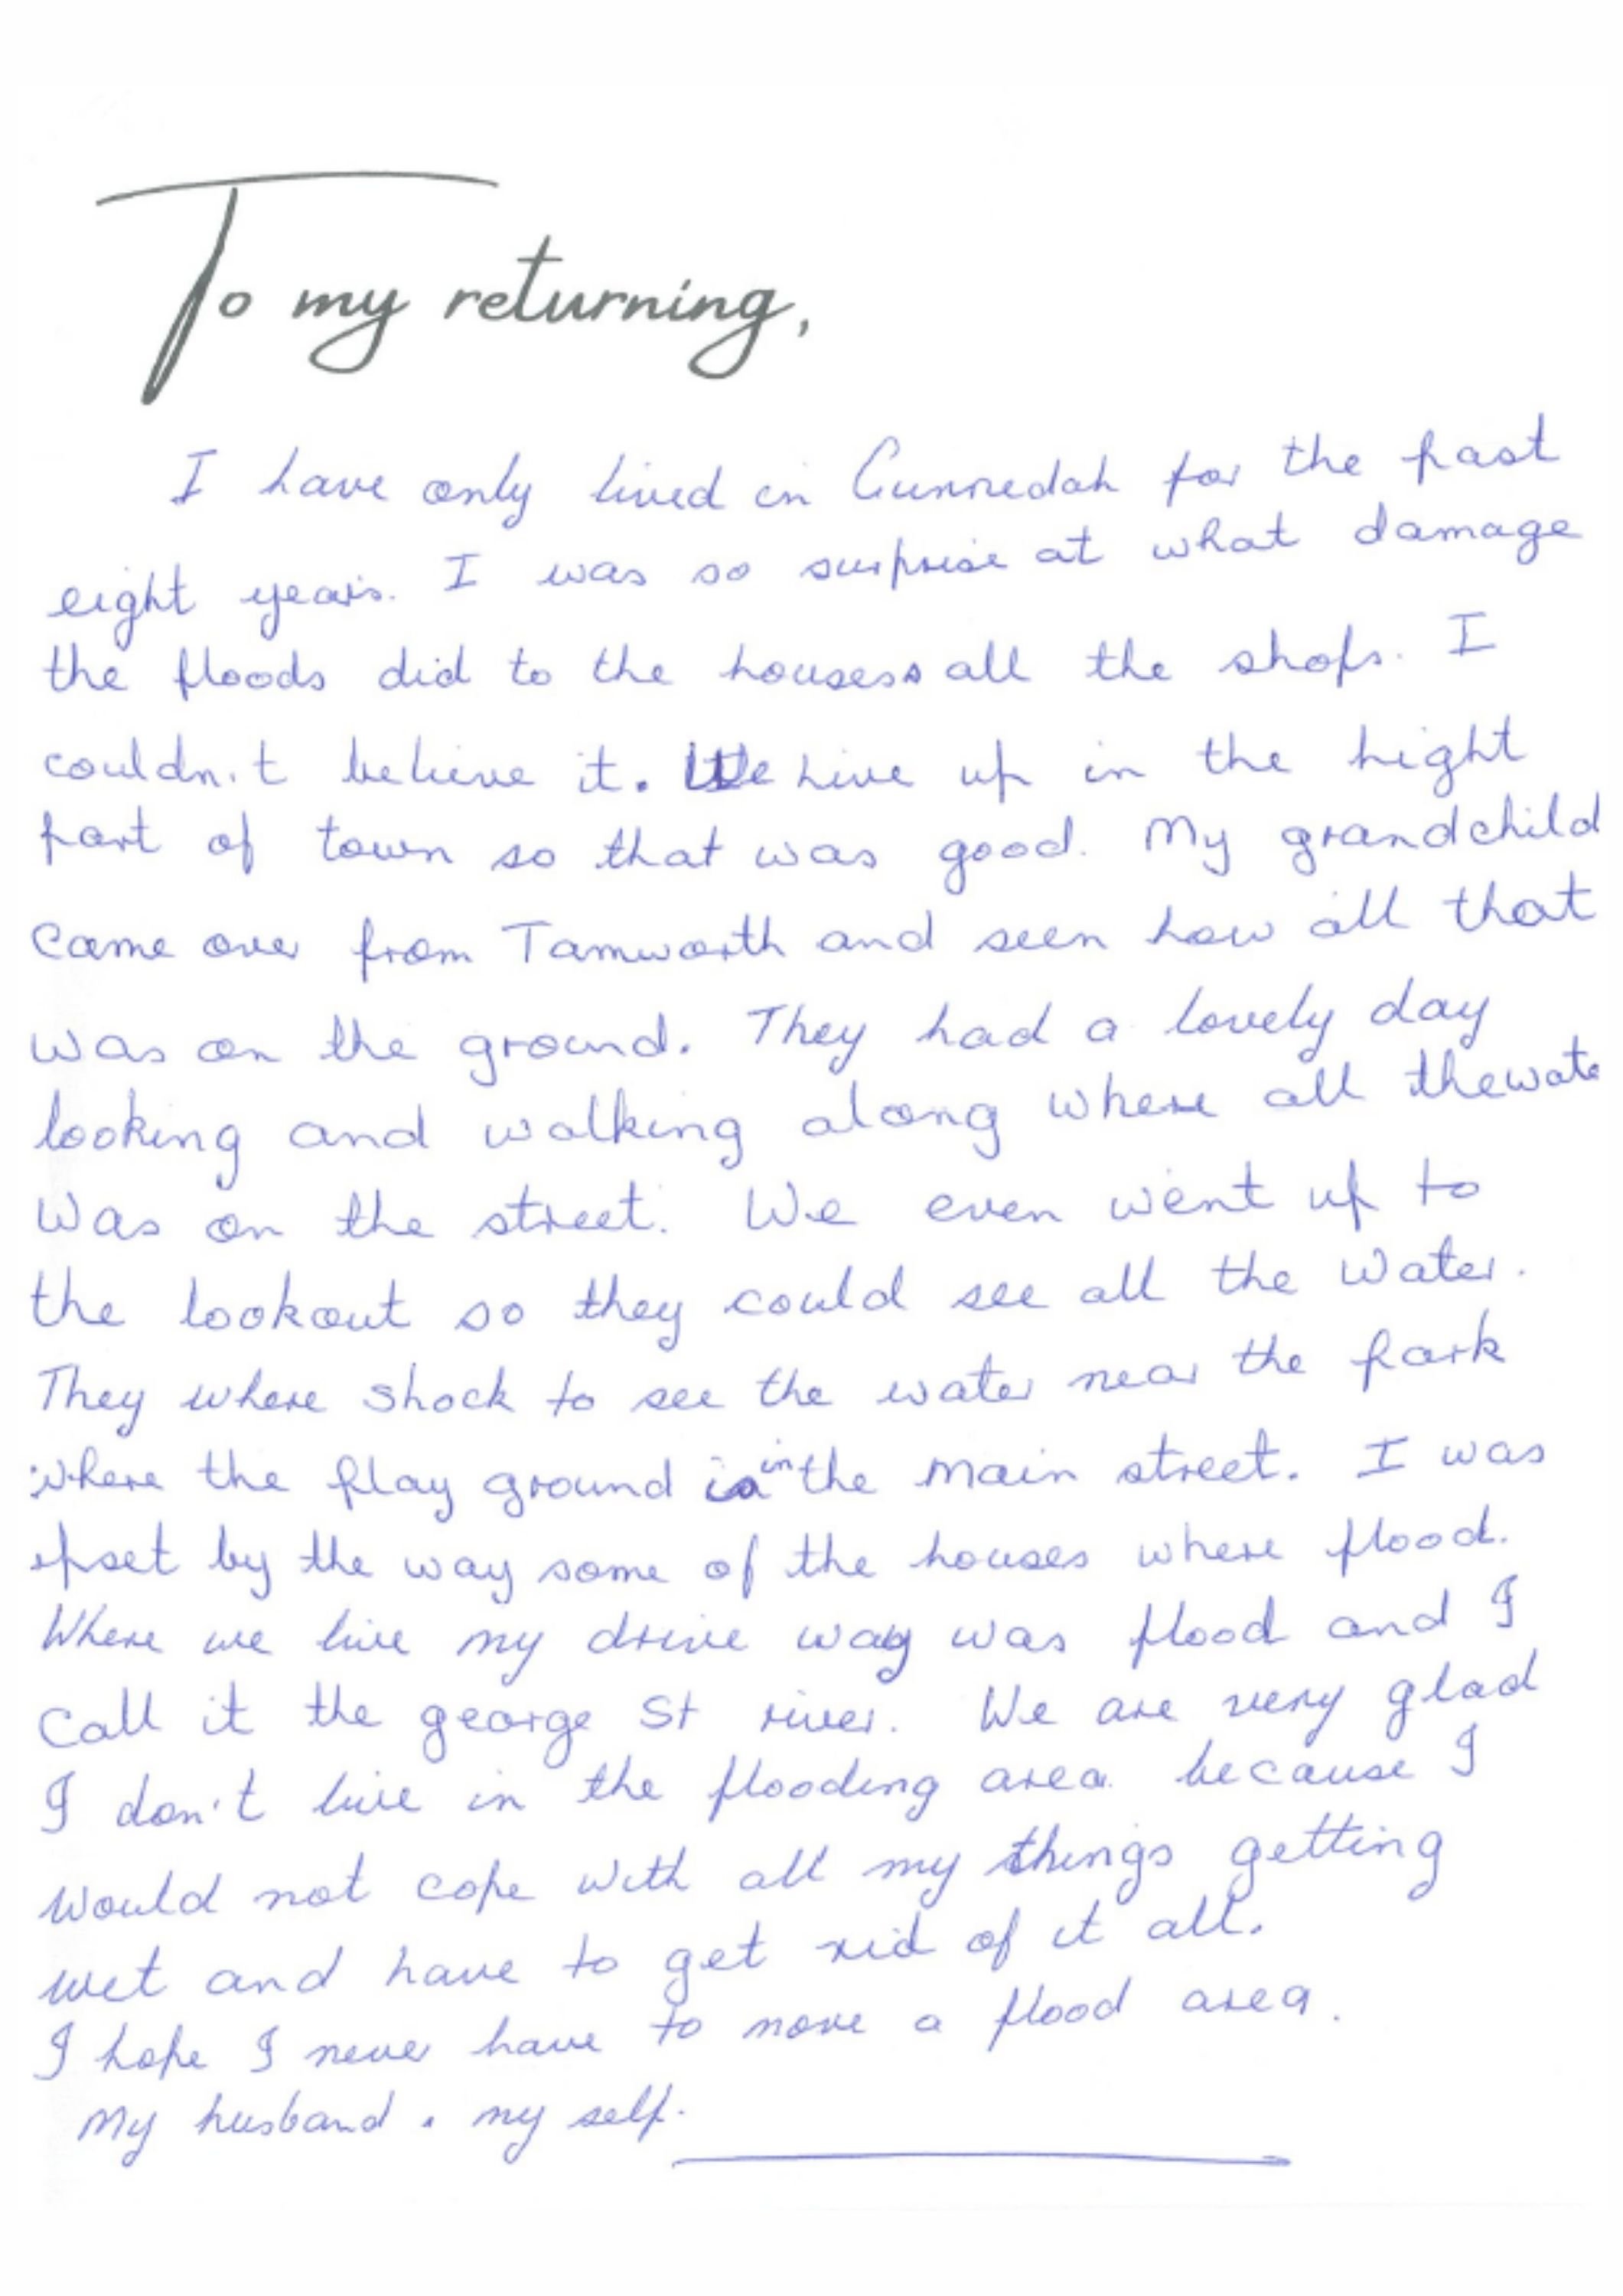 To my returning,
I have only lived in Gunnedah for the past
eight years. I was so surprise at what damage
the floods did to the houses & all the shops. I
couldn't believe it. We live up in the hight
part of town so that was good. My grandchild
came over from Tamworth and seen how all that
was on the ground. They had a lovely day
looking and walking along where all thewate
was on the street. We even went up to
the lookout so they could see all the water.
They where shock to see the water near the park
where the play ground is in the main street. I was
upset by the way some of the houses where flood.
Where we live my drive way was flood and I
call it the george St river. We are very glad
I don't live in the flooding area because I
would not cope with all my things getting
wet and have to get rid of it all.
I hope I never have to move a flood area.
My husband & my self.